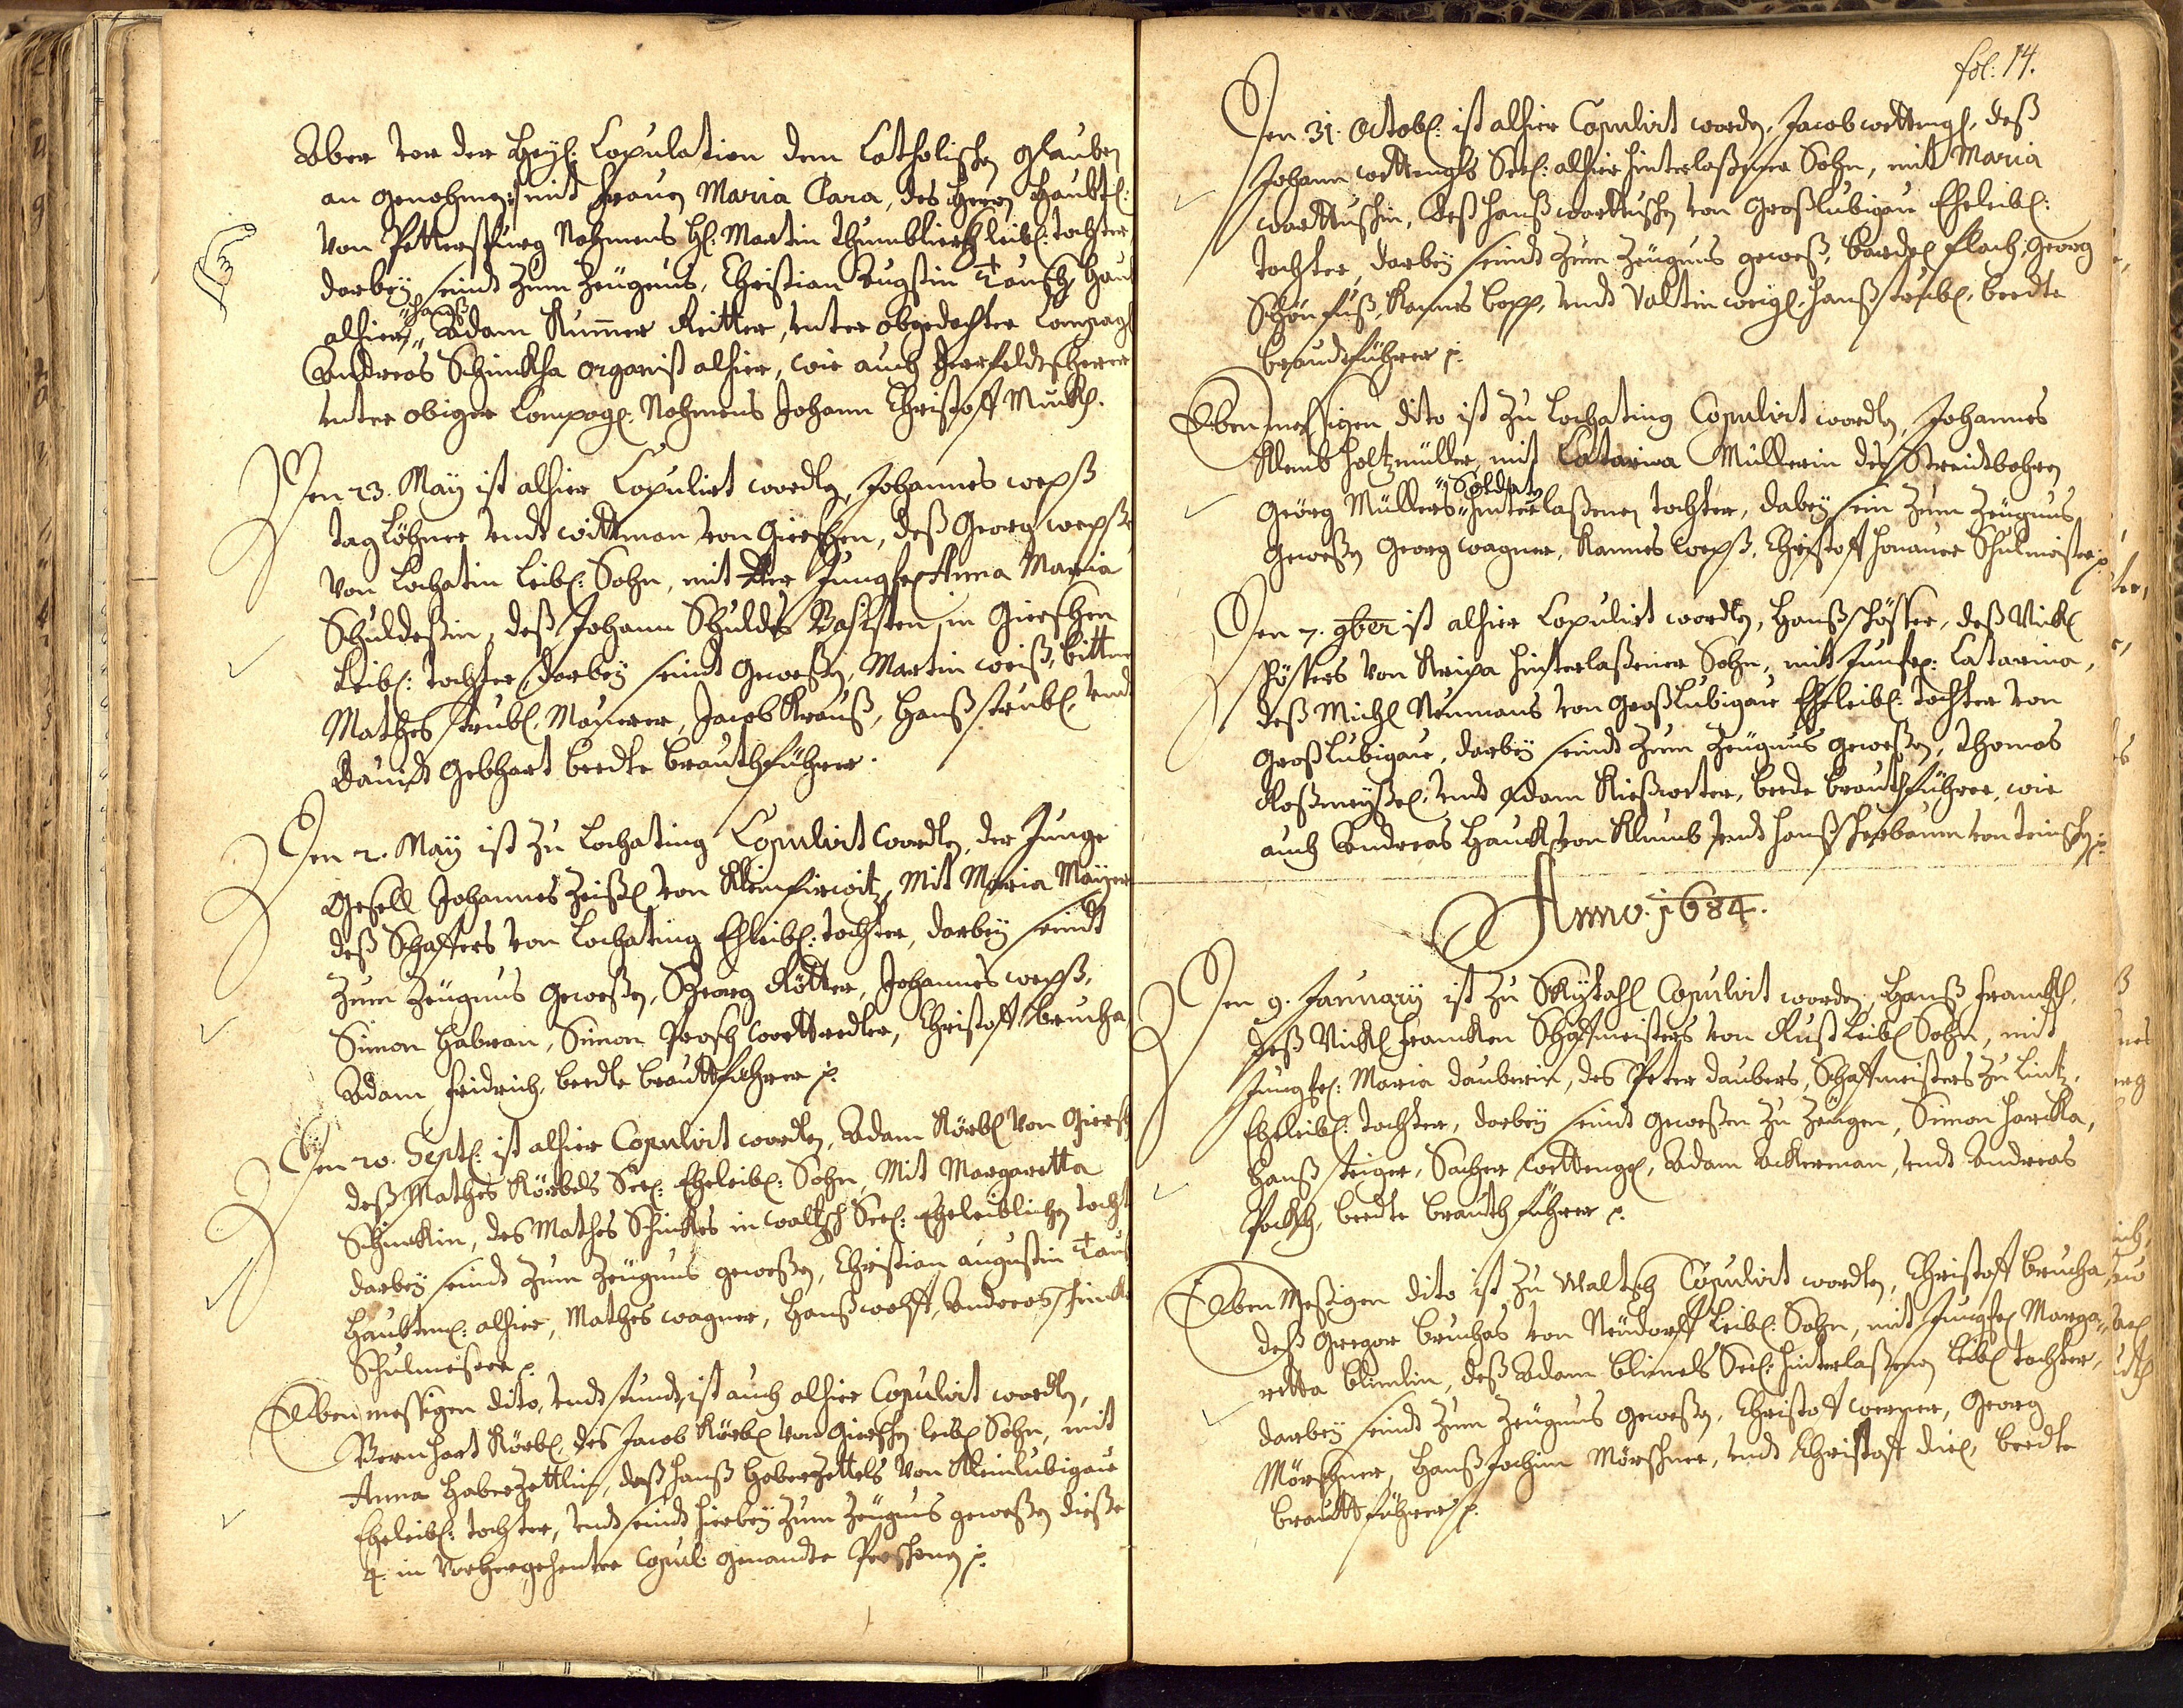 Aber vor der Heyl: Copulation dem Catholischen Glauben
an genohmen mit Frauen Maria Clara, des Herrn Haubtl:
von Petterspurg Nahmens H: Martin leibl: tochter
darbey seindt Zum Zeugnus, Christian Augustin
alhier, Adam Kummer Reitter, unter obgedachter Compag:
Andreas Schinckha Organist alhier, wie auch Herr Feldtscherer
unter obiger Compag: Nahmens Johann Christoff Mückl.
Den 23. May ist alhier Copulirt worden, Johannes wepß
tag löhner undt wittman von Gieeschen, deß Georg wepßen
von Lochatin Leibl: Sohn, mit der Jungfr: Anna Maria
Schuldeßin, deß Johann Schuldes in Gieeschen
Leibl: tochter, darbey seindt geweßen, Martin weiß,
Mathes strubl, Maurer, Jacob Krauß, Hanß strubl, undt
Davidt Gebhart beedte brauthführer.
Den 2. May ist Zu Lochating Copulirt worden, der Junge
Gesell Johannes Zeißl von Kleinfirwitz, Mit Maria Mayer
deß Schaffers von Lochating Eheleibl: tochter, darbey seindt
Zum Zeugnus geweßen, Georg Kötter, Johannes wepß,
Simon Habran, Simon Prosch Christoff brucha
Adam Fridrich, beedte brauttführer p:
Den 20. Septl: ist alhier Copulirt worden, Adam Körbl von
deß Mathes Körbels Seel: Eheleibl: Sohn, Mit Margaretta
Schinckin, des Mathes Schinckes in waltsch Seel: Eheleiblichen
darbey seindt Zum Zeugnus geweßen, Christian augustin
Haubtm: alhier, Mathes wagner, Hanß wolff, Andreas
Schulmeister p:
Eben messigen dito, undt stundt ist auch alhier Copulirt worden,
Bernhart Körbl, des Jacob Körbl von Gieeschen leibl Sohn, mit
Anna Haberzettlin, deß Hanß Haberzettels von Kleinlubigau
Eheleibl: tochter, undt seindt hierbey Zum Zeugnus geweßen dieße
4 in vorhergehenter Copul: genandte Persohnen p:
fol: 14.
Den 31. Octobl: ist alhier Copulirt worden, Jacob wettengl, deß
Johann wettengls Seel: alhier hinterlaßener Sohn, mit Maria
wottuschin, deß Hanß wottuschen von Großlubigau Eheleibl:
tochter, darbey seindt Zum Zeugnus geweß: Bardl Flach, Georg
Schönfuß, Hannes bopp, undt Valtin weigl, Hanß strubl, beedte
brauthführer p:
Eben messigen dito ist Zu Lochating Copulirt worden, Johannes
Klemb Holtzmüller, mit Catarina Müllerin des
Georg Müllers Soldaten hinterlaßenen tochter, dabey sein Zum Zeugnus
geweßen Georg wagner, Hannes wepß, Christoff Honauer Schulmeister p:
Den 7. 9ber ist alhier Copulirt worden, Hanß schöster, deß Nickl
schösters von Kriepa hinterlaßener Sohn, mit Junfr: Catarina,
deß Michl Neumans von Großlubigau Eheleibl: tochter von
Großlubigau, darbey seindt Zum Zeugnus geweßen, Thomas
undt Adam Kießwetter, beede brauthführer, wie
auch Andreas Hauck von Klumb undt Hanß von
Anno. 1684.
Den 9. January ist Zu Skytahl Copulirt worden, Hanß Franckl,
deß Nickl Francken Schaffmeisters von Rust Leibl Sohn, mit
Jungfr: Maria dauberin, des Peter daubers, Schaffmeisters Zu Lintz,
Eheleibl: tochter, darbey seindt geweßen Zu Zeugen, Simon Harckha,
Hanß steiger, Sacher wettengl, Adam Ackerman, undt Andreas
beedte brauth führer p:
Eben Meßigen dito ist Zu Waltsch Copulirt worden, Christoff brucha
deß Gregor bruchas von Neudorff Leibl: Sohn, mit Jungfr Marga-
retta blimlin, deß Adam blimels Seel: hinterlaßenen Leibl tochter,
darbey seindt Zum Zeugnus geweßen, Christoff werner, Georg
Mörschner, Hanß Jochim Mörschner, undt Christoff diel, beedte
brautt führer p: